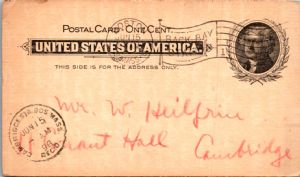 POSTAL CARD - ONE CENT.
UNITED STATES OF AMERICA.
THIS SIDE IS FOR THE ADDRESS ONLY.
BACK BAY
JUN 15
Mr. W. Heilfrin
Grant Hall
Cambridge
CAMBRIDGE STA. BOS. MASS.
JUN 15
AM
98
REC'D